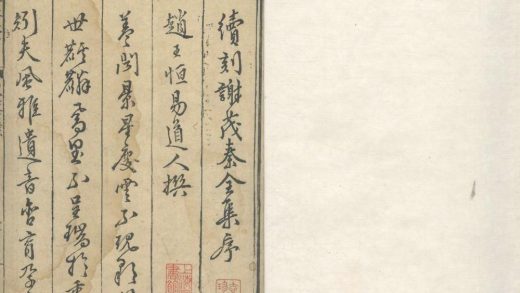 續刻謝茂秦全集序
趙王恒易道人撰
蓋聞景星慶雲不現
世麒麟不呈瑞於
矧夫風雅遺音